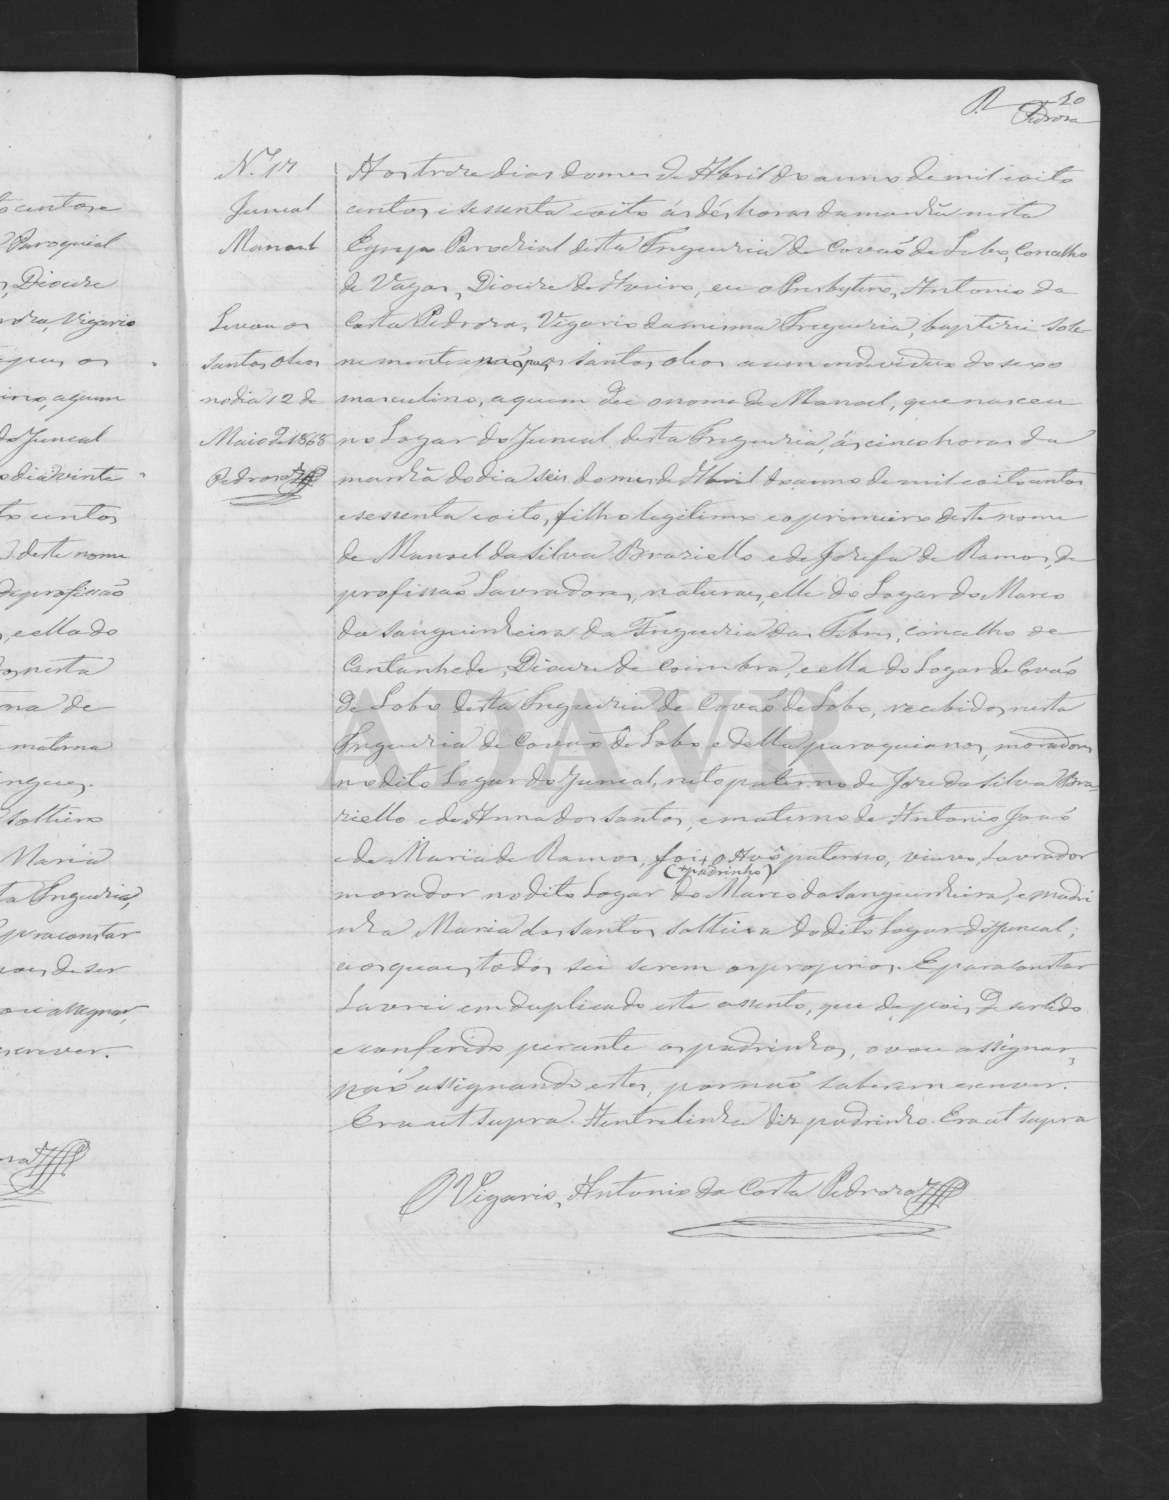 R 20
Pedrosa
N.º 17
Juncal
Manoel
Levou os
santos oleos
no dia 12 de
Maio de 1868
Pedrosa
Aos treze dias do mes de Abril do anno de mil oito
centos e sessenta e oito ás dés horas da manhã nesta
Egreja Parochial desta Freguezia de Covaõ de Lobo, Concelho
de Vagos, Diocese de Aveiro, eu o Presbytero, Antonio da
Costa Pedrosa, Vigario da mesma Freguezia, baptizei sole
nemente e naõ puz os santos oleos a um individuo do sexo
masculino, a quem dei o nome de Manoel, que nasceu
no Logar do Juncal desta Freguezia, ás cinco horas da
manhã do dia seis do mes de Abril do anno de mil oitocentos
e sessenta e oito, filho legitimo e o primeiro deste nome
de Manoel da Silva Braziello e de Josefa de Ramos, de
profissaõ Lavradores, naturaes, elle do Logar do Marco
da Sanguinheira da Freguezia das Febres, concelho de
Cantanhede, Diocese de Coimbra, e ella do Logar de Covaõ
de Lobo desta Freguezia de Covaõ de Lobo, recebidos nesta
Freguezia de Covaõ de Lobo e della paroquianos, moradores
no dito Logar do Juncal, neto paterno de José da Silva Bra
ziello e de Anna dos Santos, e materno de Antonio Joaõ
e de Maria de Ramos, foi + o Avô paterno, viuvo, Lavrador
(+ padrinho)
morador no dito Logar do Marco da Sanguinheira, e madri
nha Maria dos Santos solteira do dito Logar do Juncal;
e os quaes todos sei serem os proprios. E para constar
Lavrei em duplicado este assento, que depois de ser lido
e conferido perante os padrinhos, o vou assignar,
naõ assignando estes, por naõ saberem escrever.
Era ut supra. A entrelinha diz padrinho. Era ut supra
O Vigario, Antonio da Costa Pedrosa
ADAVR
to centos e
Paroquial
Diocese
Vigario
a quem
do Juncal
dia vinte
to centos
deste nome
de profissaõ
e ella do
nesta
na de
materna
solteiro
Maria
ta Freguezia,
para constar
de ser
assignar,
escrever.